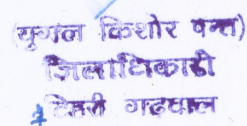 (युगल किशोर पन्त)
जिलाधिकारी
टिहरी गढ़वाल